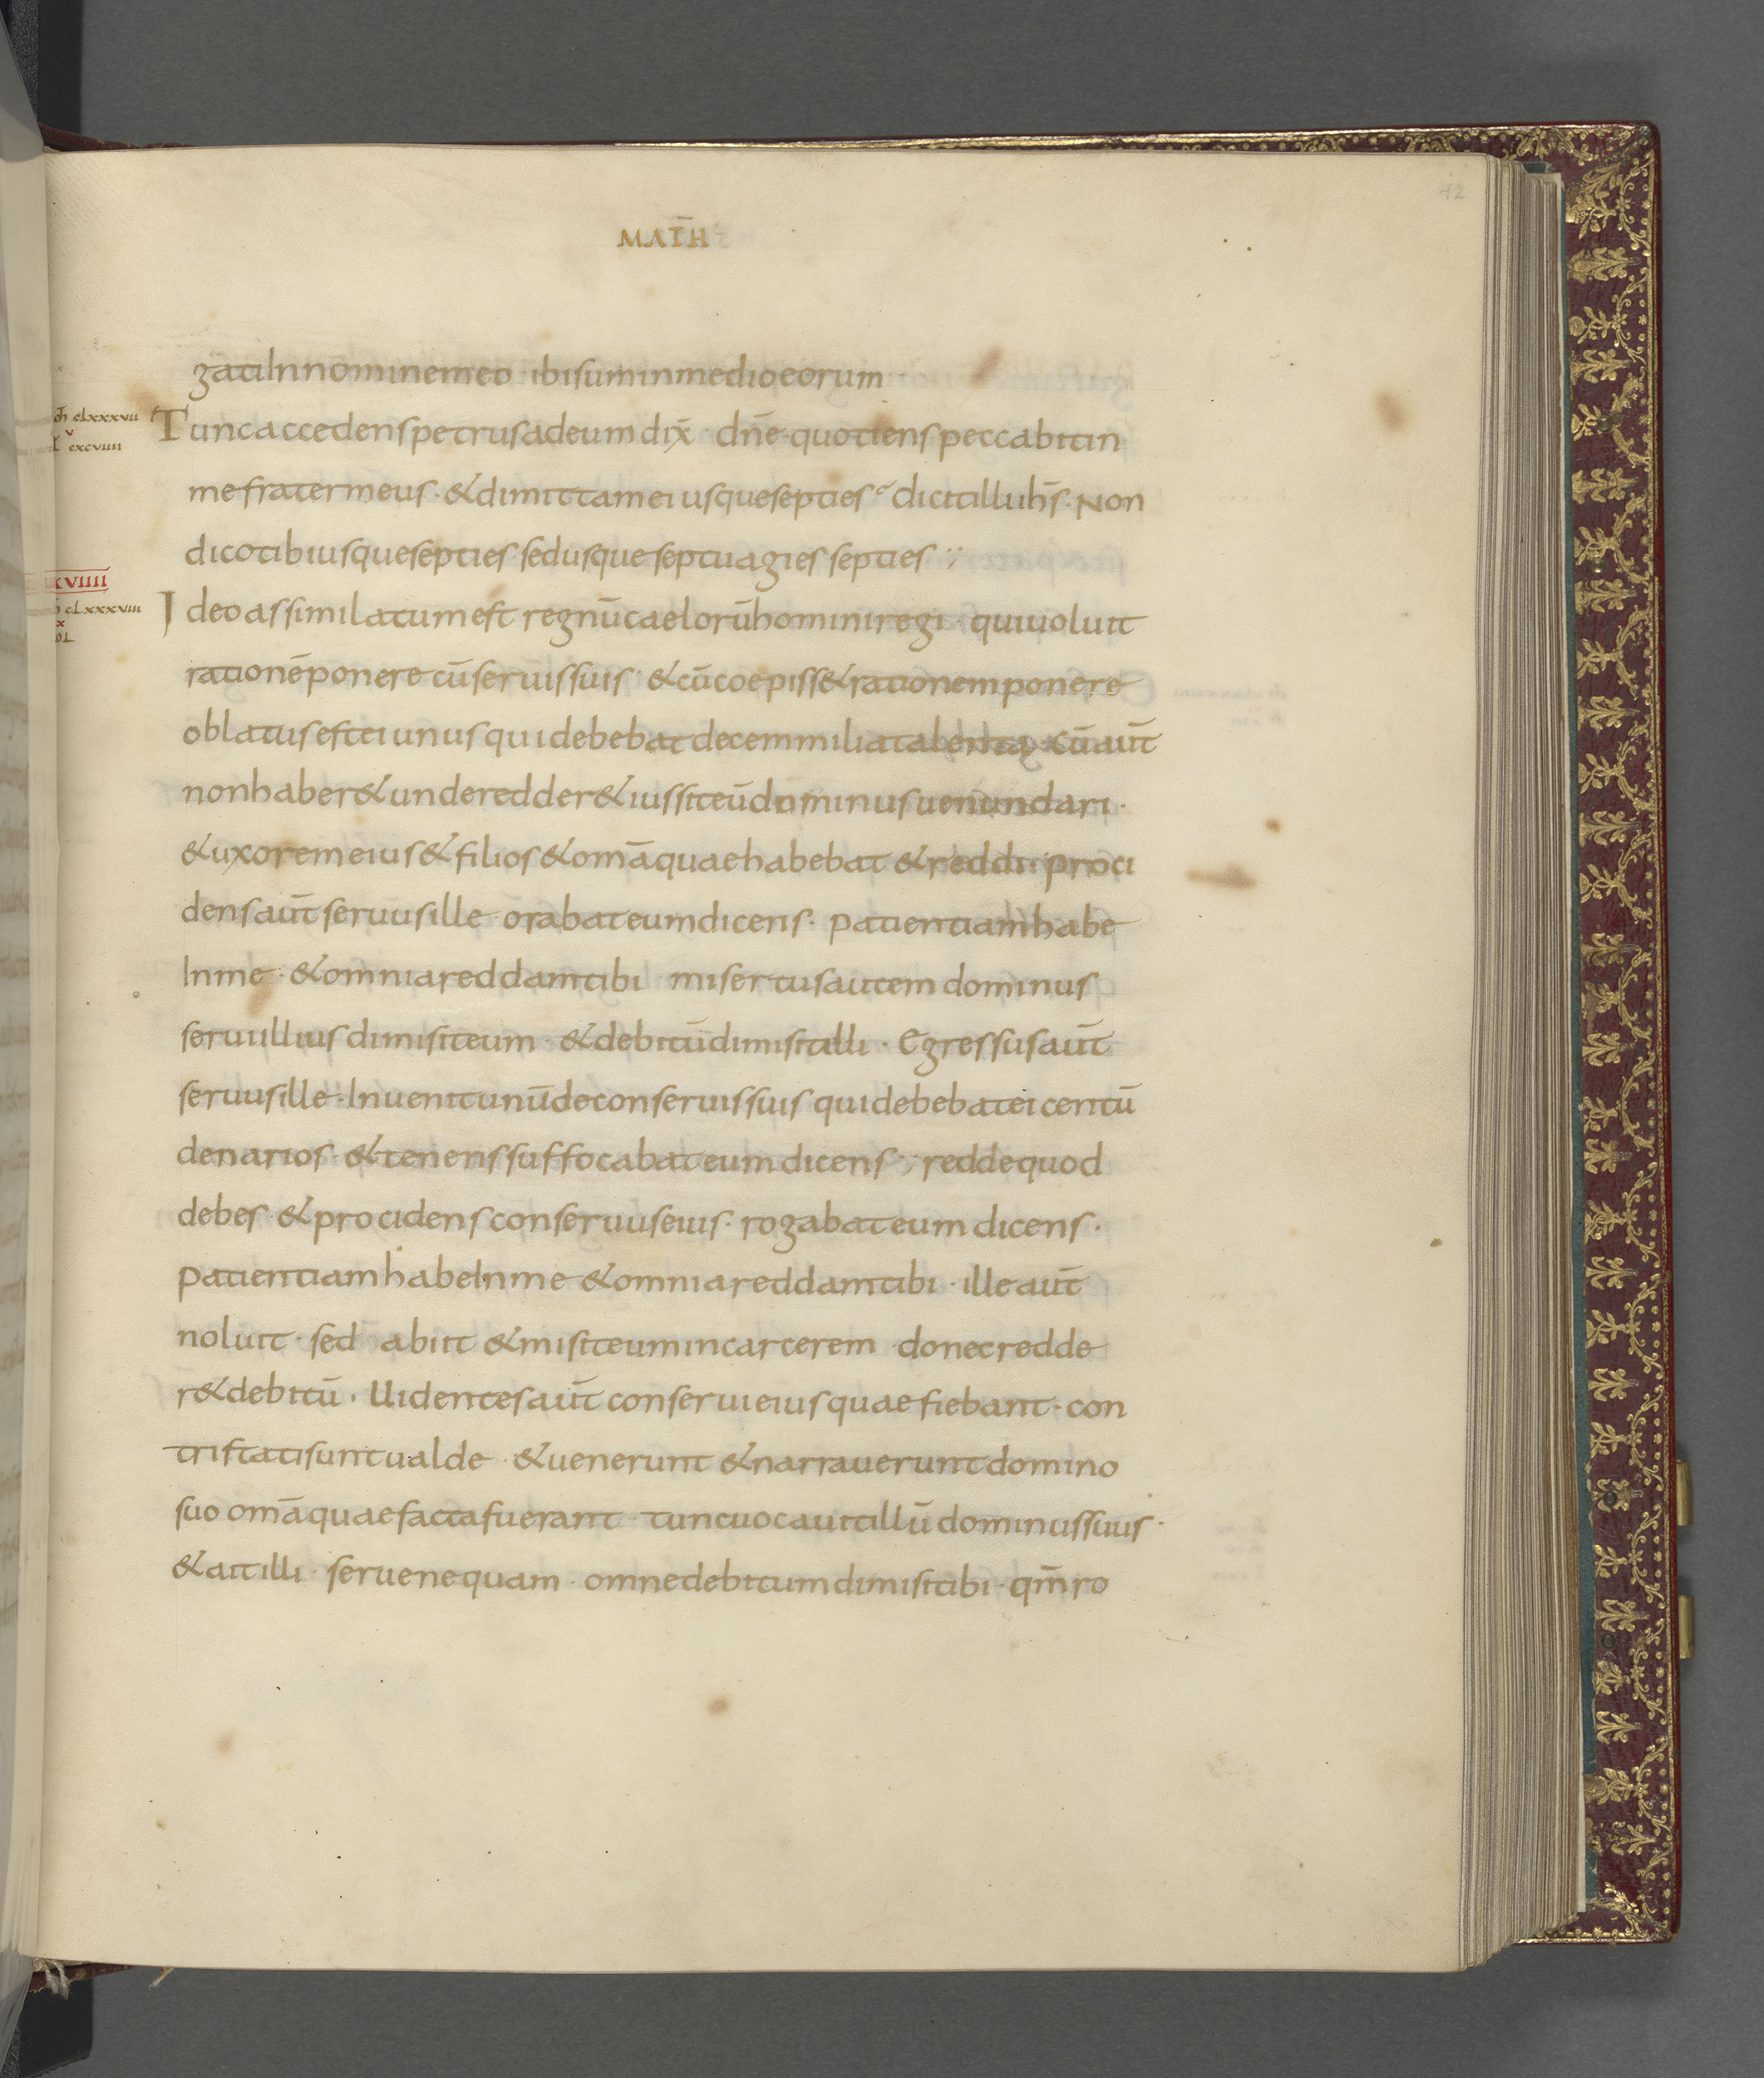 42
MAT̄H
gatiInnominemeo · ibisuminmedioeorum
cLxxxvii
Tuncaccedenspetrusadeumdix̄ · dn̄e · quotienspeccabitin
v
cxcviiii
mefratermeus · &dimittameiusquesepties · dicitilliuih̄s · Non
dicotibiusquesepties · sedusqueseptuagies septies ·,·
xviiii
cLxxxviii
Ideoassimilatumest regnūcaelorūhominiregi · quiuoluit
x
rationēponere cūseruissuis · &cūcoepiss&rationemponere
oblatusesteiunusquidebebatdecemmiliatalenta · Cūaut̄
nonhaber&undeředder&iussiteūdominusuenundari ·
&uxoremeius&filios&omāquaehabebat &reddi · proci
densaut̄seruusille · orabateumdicens · patientiamhabe
Inme · &omniareddamtibi · misertusautem dominus
seruiillius dimisiteum · &debitūdimisitilli · Egressusaut̄
seruusille · Inuenitunūdeconseruissuis quidebebateicentū
denarios · &tenenssuffocabateumdicens ·,· reddequod
debes · &procidensconseruuseius · rogabateum dicens ·
patientiamhabeInme &omniareddamtibi · illeaut̄
noluit · sed abiit &misiteumincarcerem · donecredde
r&debitū · Uidentesaut̄ conseruieiusquaefiebant · con
tristatisuntualde · &uenerunt &narraueruntdomino
suo omāquaefactafuerant · tuncuocauitillū dominussuus ·
&aitilli · seruenequam · omnedebitumdimisitibi · qm̄ro